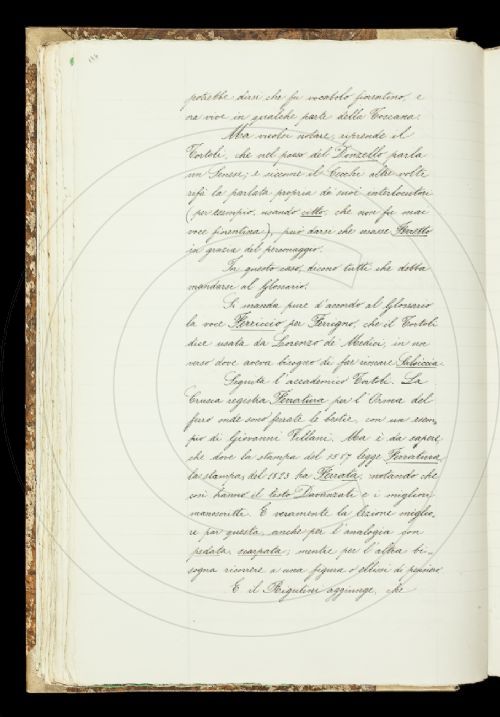 potrebbe dirsi che fu vocabolo fiorentino, e
ora vive in qualche parte della Toscana.
Ma vuolsi notare, riprende il
Tortoli, che nel passo del Donzello parla
un Senese; e siccome il Cecchi altre volte
refà la parlata propria de' suoi interlocutori
(per esempio, usando citto, che non fu mai
voce fiorentina), può darsi che usasse Ferretto
in grazia del personaggio.
In questo caso, dicono tutti che debba
mandarsi al Glossario.
Si manda pure d'accordo al Glossario
la voce Ferriccio per Ferrigno, che il Tortoli
dice usata da Lorenzo de' Medici, in un
verso dove aveva bisogno di far rimare Salsiccia.
Seguita l'accademico Tortoli. La
Crusca registra Ferratura per l'Orma del
ferro onde sono ferrate le bestie, con un esem-
pio di Giovanni Villani. Ma è da sapere
che dove la stampa del 1587 legge Ferratura
la stampa del 1823 ha Ferrata, notando che
così hanno il testo Davanzati e i migliori
manoscritti. E veramente la lezione miglio-
re par questa, anche per l'analogia con
pedata, scarpata; mentre per l'altra bi-
sogna ricorrere a una figura o ellissi di pensiero
E il Rigutini aggiunge, che